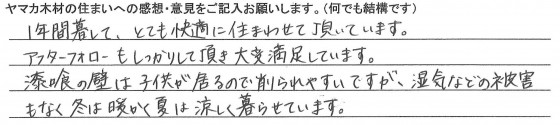 ヤマカ木材の住まいへの感想・意見をご記入お願いします。(何でも結構です)
1年間暮して、とても快適に住まわせて頂いています。
アフターフォローもしっかりして頂き大変満足しています。
漆喰の壁は子供が居るので削られやすいですが、湿気などの被害
もなく冬は暖かく夏は涼しく暮らせています。